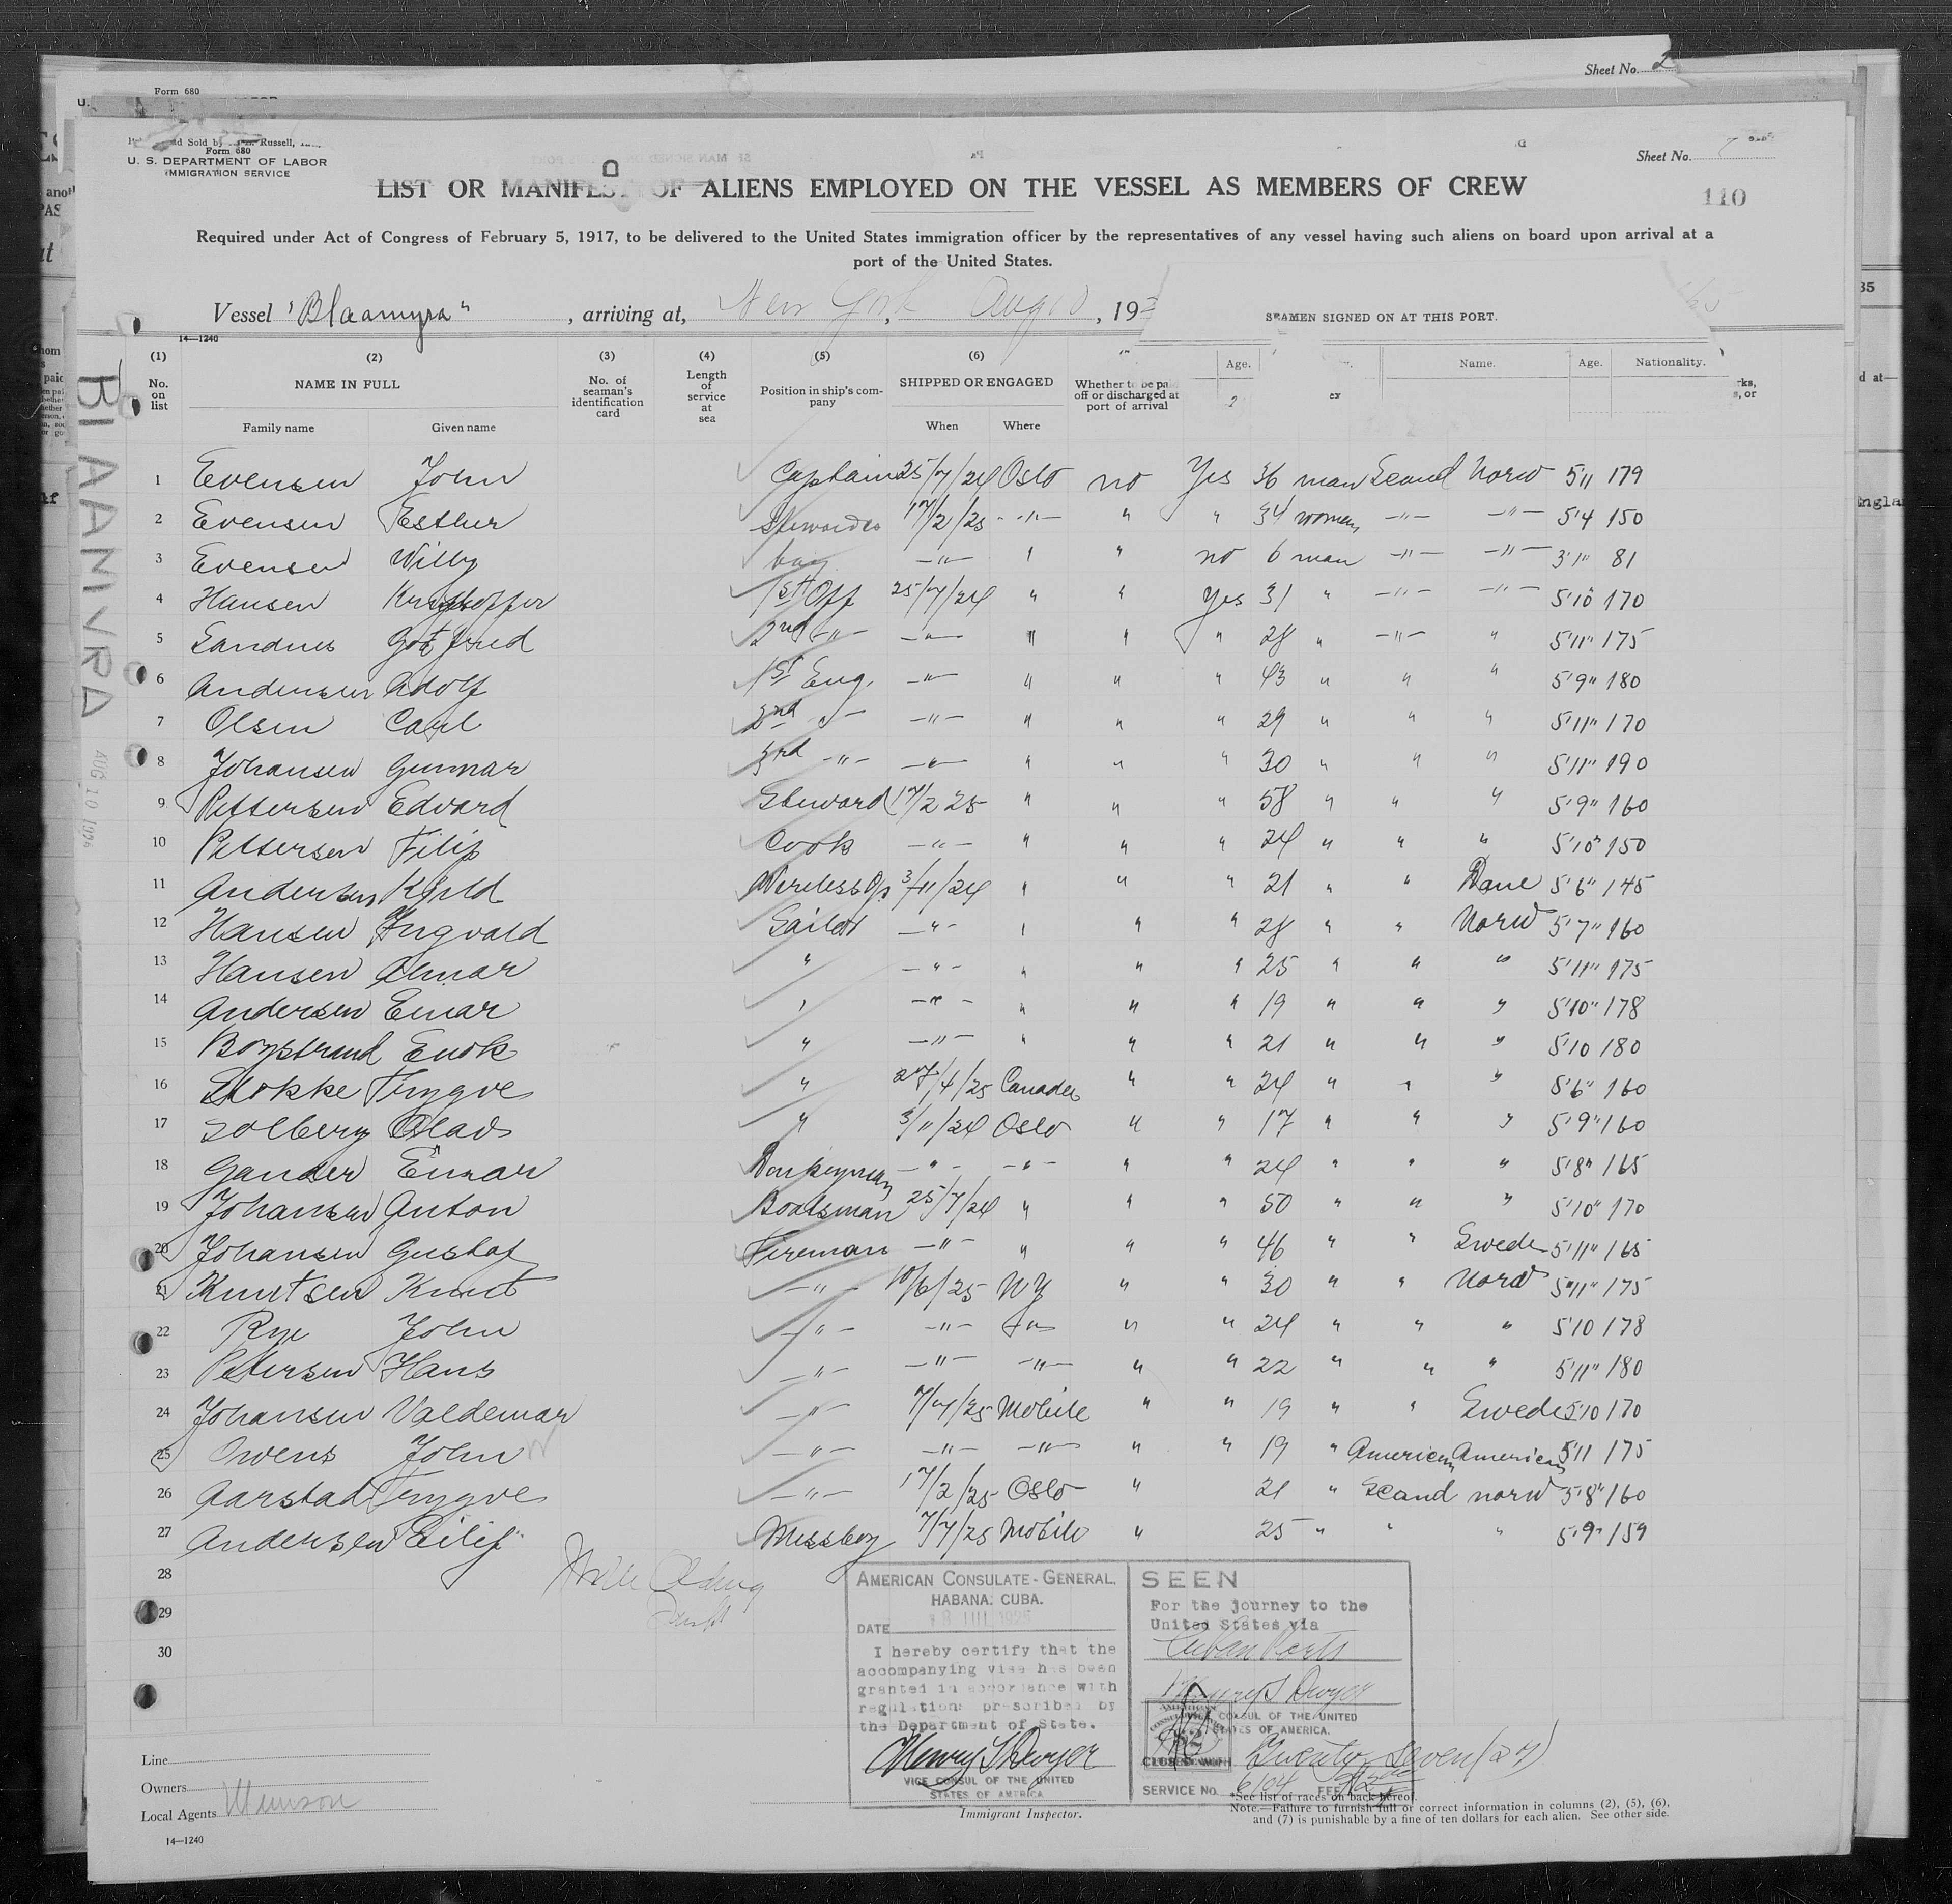 Sheet No. 2
Form 680
Sold by Russell,
Form 680
U. S. DEPARTMENT OF LABOR
IMMIGRATION SERVICE
Sheet No.
110
LIST OR MANIFEST OF ALIENS EMPLOYED ON THE VESSEL AS MEMBERS OF CREW
Required under Act of Congress of February 5, 1917, to be delivered to the United States immigration officer by the representatives of any vessel having such aliens on board upon arrival at a
port of the United States.
Vessel "Blaamyra", arriving at, New York, Aug 10, 19
SEAMEN SIGNED ON AT THIS PORT.
14—1240
(1) (2) (3) (4) (5) (6)
No. on list
NAME IN FULL
Family name Given name
No. of seaman's identification card
Length of service at sea
Position in ship's company
SHIPPED OR ENGAGED
When Where
Whether to be paid off or discharged at port of arrival
Age. Name. Age. Nationality.
BLAAMYRA
AUG 10
1 Evensen John Captain 25/7/24 Oslo no Yes 36 man Scand Norw 5'11 179
2 Evensen Esther Stewardes 17/2/25 -"- " " 34 women -"- -"- 5'4 150
3 Evensen Willy boy -"- " " no 6 man -"- -"- 3'1" 81
4 Hansen Kristoffer 1st Off 25/7/24 " " Yes 31 " -"- -"- 5'10 170
5 Sandnes Gotfred 2nd -"- -"- " " " 28 " -"- " 5'11" 175
6 Andersen Adolf 1st Eng. -"- " " " 43 " " " 5'9" 180
7 Olsen Carl 2nd -"- -"- " " " 29 " " " 5'11" 170
8 Johansen Gunnar 3rd -"- -"- " " " 30 " " " 5'11" 190
9 Pettersen Edvard Steward 17/2 25 " " " 58 " " " 5'9" 160
10 Pettersen Filip Cook -"- " " " 24 " " " 5'10" 150
11 Andersen Wireless Op. 3/11/24 " " " 21 " " Dane 5'6" 145
12 Hansen Ingvald Sailor -"- " " " 28 " " Norw 5'7" 160
13 Hansen " -"- " " " 25 " " " 5'11" 175
14 Andersen Einar " -"- " " " 19 " " " 5'10" 178
15 Enok " -"- " " " 21 " " " 5'10 180
16 Stokke Trygve " 27/4/25 Canada " " 24 " " " 5'6" 160
17 Solberg Olav " 3/11/24 Oslo " " 17 " " " 5'9" 160
18 Einar Donkeyman -"- -"- " " 24 " " " 5'8" 165
19 Johansen Anton Boatsman 25/7/24 " " " 50 " " " 5'10" 170
20 Johansen Gustaf Fireman -"- " " " 46 " " Swede 5'11" 165
21 Knutsen Knut -"- 10/6/25 NY " " 30 " " Norw 5'11" 175
22 Rye John -"- -"- " " 24 " " " 5'10 178
23 Petersen Hans -"- -"- -"- " " 22 " " " 5'11" 180
24 Johansen Valdemar -"- 7/7/25 Mobile " " 19 " " Swede 5'10 170
25 Owens John -"- -"- -"- " " 19 " American American 5'11 175
26 Aarstad Trygve -"- 17/2/25 Oslo " 21 " Scand norw 5'8" 160
27 Andersen Eilif Messboy 7/7/25 Mobile " 25 " " " 5'9" 159
28
29
30
AMERICAN CONSULATE-GENERAL,
HABANA, CUBA.
DATE
I hereby certify that the
accompanying vise has been
granted in accordance with
regulations prescribed by
the Department of State.
Henry S Dwyer
VICE CONSUL OF THE UNITED
STATES OF AMERICA
SEEN
For the journey to the
United States via
Cuban Ports
Henry S Dwyer
VICE CONSUL OF THE UNITED
STATES OF AMERICA.
Twenty Seven (27)
SERVICE No. 6104 FEE
Line
Owners
Local Agents Munson
14—1240
Immigrant Inspector.
*See list of races on back hereof.
Note.—Failure to furnish full or correct information in columns (2), (5), (6),
and (7) is punishable by a fine of ten dollars for each alien. See other side.